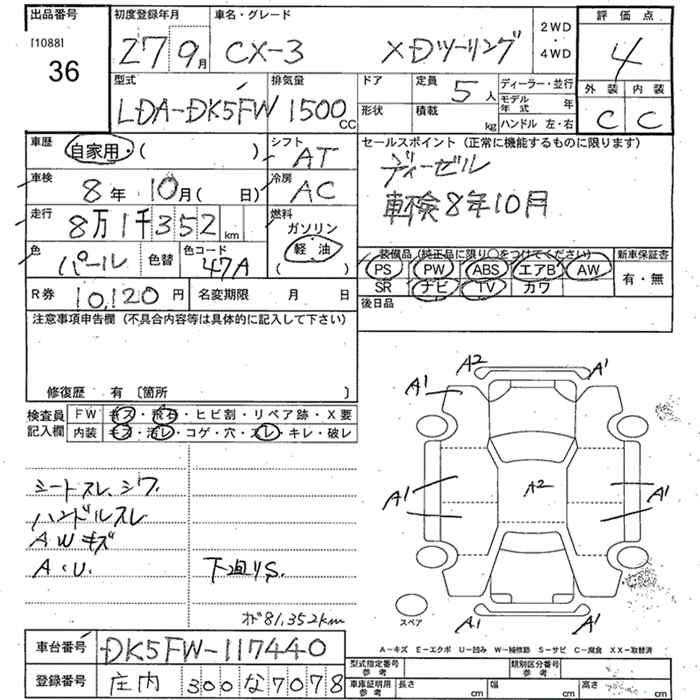 出品番号 初度登録年月 車名・グレード 2WD 評価点
[1088] 36 27 9月 CX-3 XDツーリング 4WD 4
型式 排気量 ドア 定員 5人 ディーラー・並行 外装 内装
LDA-DK5FW 1500cc 形状 積載 kg モデル年式 年 C C
ハンドル 左・右
車歴 自家用・( ) シフト AT セールスポイント (正常に機能するものに限ります)
ディーゼル
車検 8年 10月( 日) 冷房 AC 車検8年10月
走行 8万1千352km 燃料 ガソリン
軽油
( )
色 パール 色替 色コード 47A 装備品 (純正品に限り○をつけてください) 新車保証書
PS PW ABS エアB AW 有・無
SR ナビ TV カワ
R券 10,120円 名変期限 月 日 後日品
注意事項申告欄 (不具合内容等は具体的に記入して下さい)
修復歴 有 〔箇所 〕
検査員 FW キズ・飛石・ヒビ割・リペア跡・X要
記入欄 内装 キズ・汚レ・コゲ・穴・スレ・キレ・破レ
A2 A1
A1
シートスレ、シワ A1 A2 A1
ハンドルスレ A1 A1
AWキズ
A・U. 下廻りS.
スペア A1 A1
メーター81,352km
A-キズ E-エクボ U-凹み W-補修跡 S-サビ C-腐食 XX-取替済
車台番号 DK5FW-117440
登録番号 庄内 300 な 7078
型式指定番号 参考 類別区分番号 参考
車庫証明用 参考 長さ cm 幅 cm 高さ cm